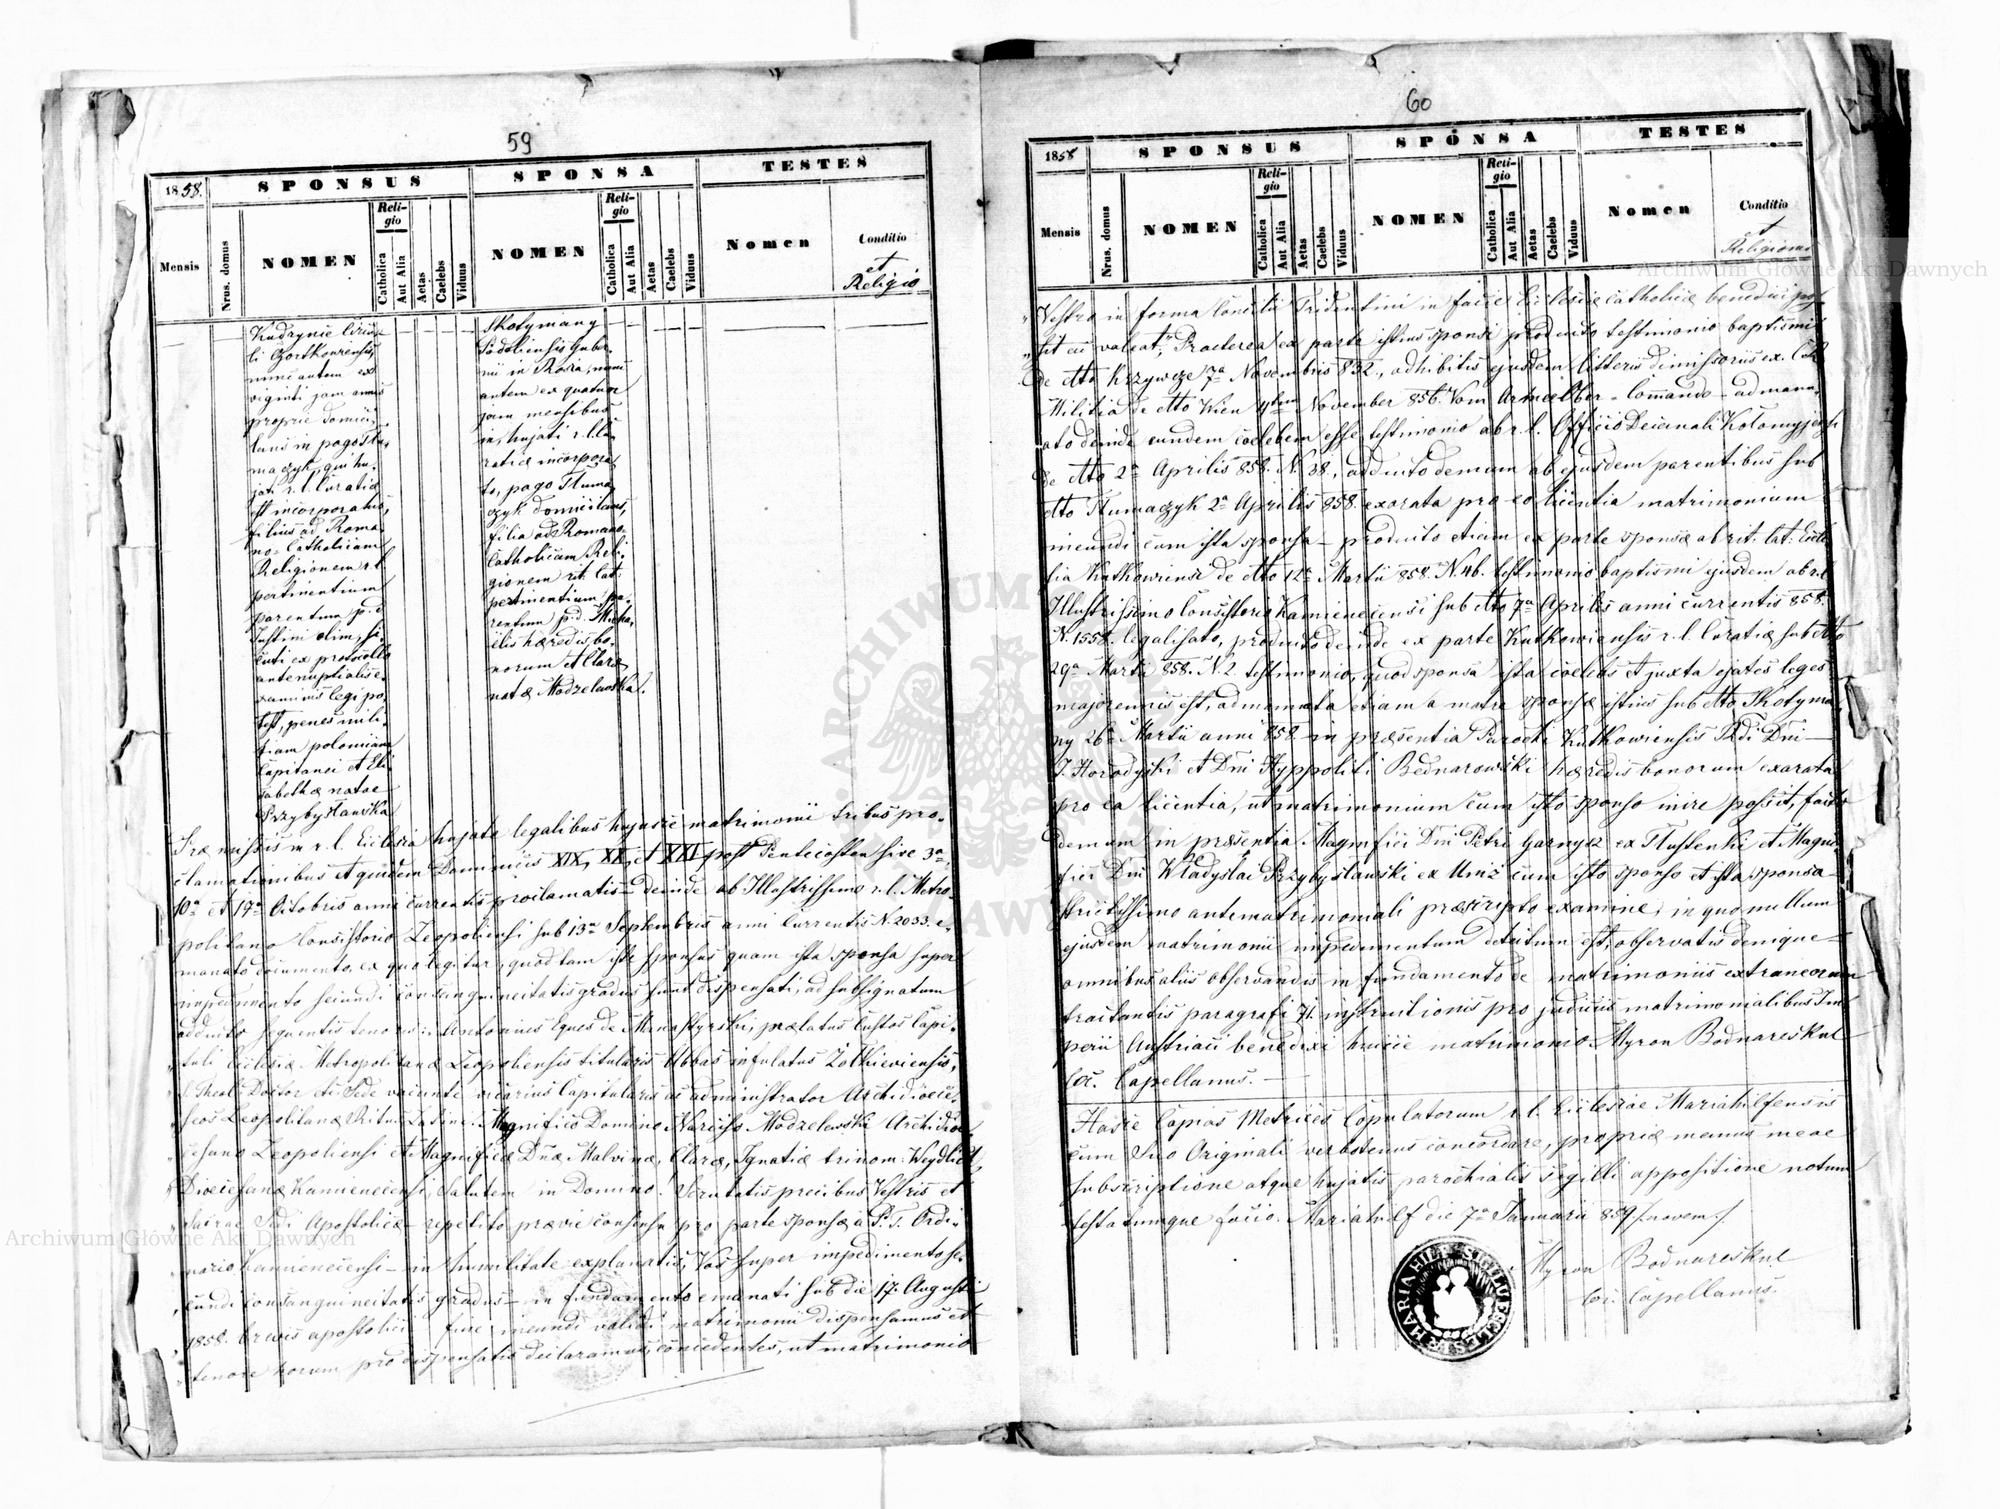 59
1858.
SPONSUS
SPONSA
TESTES
Mensis
Nrus. domus
NOMEN
Religio
Catholica
Aut Alia
Aetas
Caelebs
Viduus
NOMEN
Religio
Catholica
Aut Alia
Aetas
Caelebs
Viduus
Nomen
Conditio
et
Religio
Kudrynie Circu-
li Czortkoviensis,
nunc autem ex
viginti jam annis
proprie domici-
lans in pago Tłu-
maczyk, qui hu-
jati r. l. Curatiae
est incorporatus,
filius ad Roma-
no-Catholicam
Religionem r. l.
pertinentium
parentum p. d.
Justini olim, si-
cuti ex protocollo
antenuptialis e-
xaminis legi po-
test, penes mili-
tiam polonicam
Capitanei et Eli-
sabethae natae
Przybysławska
Skotymany
Podoliensis Guber-
nii in Rosia, nunc
autem ex quatuor
jam mensibus
in hujati r. l. Cu-
ratiae incorpora-
to, pago Tłuma-
czyk domicilans,
filia ad Romano-
Catholicam Reli-
gionem rit. lat.
pertinentium pa-
rentum p. d. Micha-
elis haeredis bo-
norum et Clarae
natae Modzelewska.
Praemissis in r. l. Ecclesia hujate legalibus hujusce matrimonii tribus pro-
clamationibus et quidem Dominicis XIX, XX, et XXI post Pentecosten sive 3a
10a et 17a Octobris anni currentis proclamatis - deinde ab Illustrissimo r. l. Metro-
politano Consistorio Leopoliensi sub 13a Septembris anni currentis N. 2033. e-
manato documento, ex quo legitur, quod tam iste sponsus quam ista sponsa super
impedimento secundi consanguineitatis gradus sunt dispensati, ad subsignatum
adducto sequentis tenoris: „Antonius Eques de Manastyrski, praelatus Custos Capi-
„tuli Ecclesiae Metropolitanae Leopoliensis titularis Abbas infulatus Zolkieviensis,
„S. Theol. Doctor etc. Sede vacante vicarius Capitularis ac administrator Archidioece-
„seos Leopolitanae Ritus Latini. Magnifico Domino Narciso Modzelewski Archidioe-
„cesano Leopoliensi et Magnificae Dnae Malvinae, Clarae, Ignatiae trinom. Weydlich,
„Dioecesanae Kamenecensi, Salutem in Domino! Scrutatis precibus Vestris et
„Sacrae Sedi Apostolicae - repetito praevie consensu pro parte sponsae a P. T. Ordi-
„nario Kamenecensi - in humilitate explanatis, Vos super impedimento se-
„cundi consanguineitatis gradus - in fundamento emanati sub die 17. Augusti
„1858. brevis apostolici fine ineundi validi matrimonii dispensamus et
„tenore horum pro dispensatis declaramus, concedentes, ut matrimonio
60
1858
SPONSUS
SPONSA
TESTES
Mensis
Nrus. domus
NOMEN
Religio
Catholica
Aut Alia
Aetas
Caelebs
Viduus
NOMEN
Religio
Catholica
Aut Alia
Aetas
Caelebs
Viduus
Nomen
Conditio
et
Religio
„Vestro in forma Concilii Tridentini in facie Ecclesiae Catholicae benedici pos-
„sit ac valeat”, Praeterea ex parte istius sponsi producto testimonio baptismi
de dtto Krzywcze 7a Novembris 832., adhibitis ejusdem litteris dimissoriis ex C. R.
Militia de dtto Wien 4ten November 856. Vom Armee Ober-Comando - ad mann-
ato deinde eundem coelebem esse testimonio ab r. l. Officio Decanali Kolomyjensi
de dtto 2a Aprilis 858. N. 38., adducto demum ab ejusdem parentibus sub
dtto Tłumaczyk 2a Aprilis 858. exorata pro eo licentia matrimonium
ineundi cum ista sponsa - producto etiam ex parte sponsae ab rit. lat. Eccle-
sia Kutkowiensi de dtto 12a Martii 858. N. 46. testimonio baptismi ejusdem ab r. l.
Illustrissimo Consistorio Kamenecensi sub dtto 7a Aprilis anni currentis 858.
N. 1558. legalisato, producto deinde ex parte Kutkowiensis r. l. Curatiae sub dtto
29a Martii 858. N. 2. testimonio, quod sponsa ista coelebs et juxta ejates leges
majorennis est, admanuata etiam a matre sponsae istius sub dtto Skotyma-
ny 26a Martii anni 858 - in praesentia Parochi Kutkowiensis Rdi Dni
J. Horodyski et Dni Hyppoliti Bednarowski haeredis bonorum exarata
pro ea licentia, ut matrimonium cum isto sponso inire possit, facto
demum in praesentia Magnifici Dni Petri Garnysz ex Tłustenki et Magni-
fici Dni Władyslai Przybysławski ex Uniż cum isto sponso et ista sponsa -
strictissimo antematrimoniali praescripto examine, in quo nullum
ejusdem matrimonii impedimentum detectum est, observatis denique -
omnibus aliis observandis in fundamento de matrimoniis extraneorum
tractantis paragrafi 71. instructionis pro judiciis matrimonialibus Im-
perii Austriaci benedixi huicce matrimonio. Myron Bodnareskul
loc. Capellanus. -
Hasce Copias Metrices Copulatorum r. l. Ecclesiae Mariahilfensis
cum Suo Originali verbotenus concordare, propriae manus meae
subscriptione atque hujatis parochialis sigilli appositione notum
testatumque facio. Mariahilf die 7a Januarii 859 /:novem:/
Myron Bodnareskul
loc. Capellanus.
Archiwum Główne Akt Dawnych
Archiwum Główne Akt Dawnych